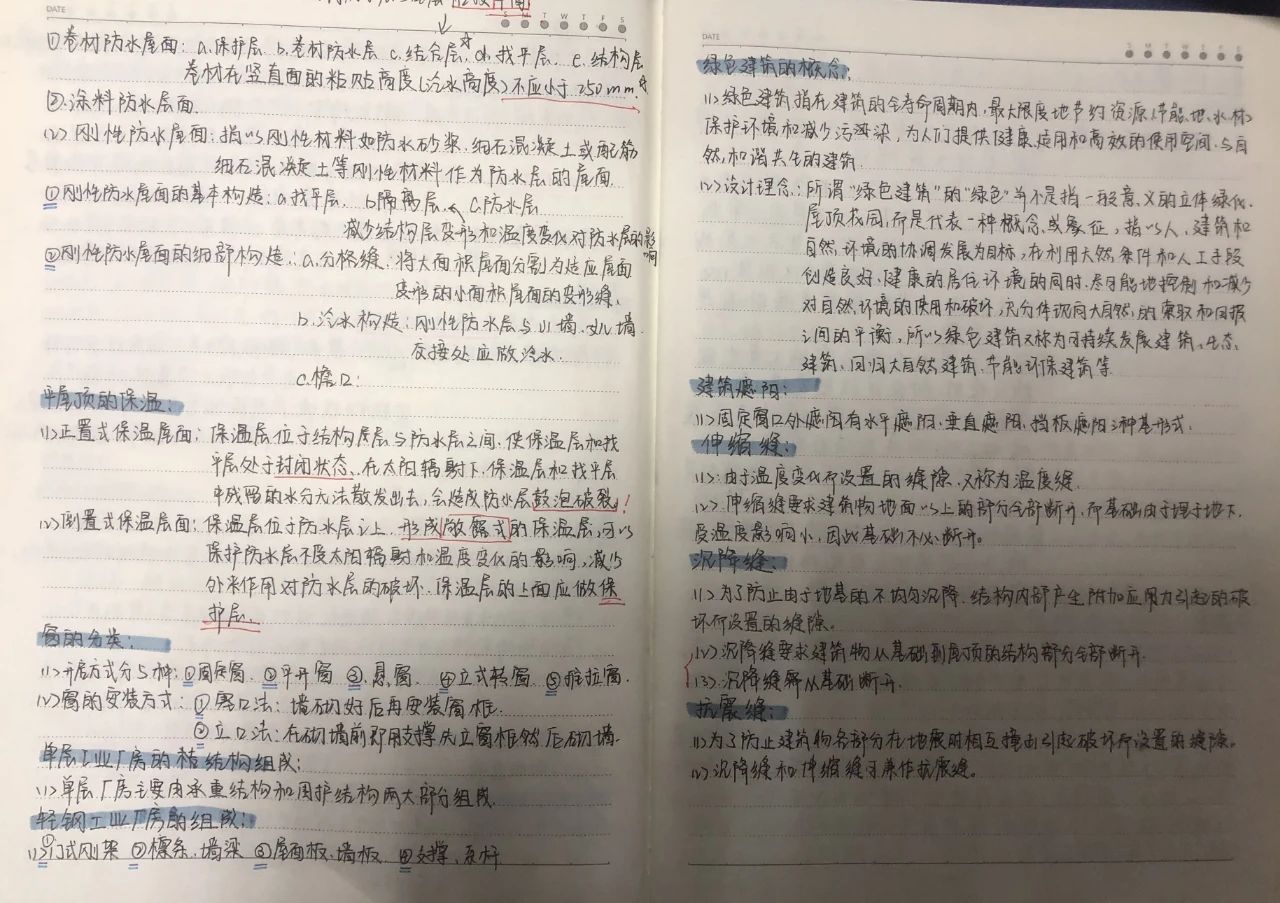 DATE
S M T W T F S
①卷材防水屋面：a.保护层 b.卷材防水层 c.结合层 d.找平层 e.结构层
卷材在竖直面的粘贴高度(泛水高度)不应小于250mm.
②.涂料防水层面.
(2) 刚性防水屋面：指以刚性材料如防水砂浆、细石混凝土或配筋
细石混凝土等刚性材料作为防水层的屋面
①刚性防水屋面的基本构造：a找平层、b隔离层、C.防水层
减少结构层变形和温度变化对防水层的影响
②刚性防水屋面的细部构造：a.分格缝：将大面积屋面分割为适应屋面
变形的小面积屋面的变形缝、
b.泛水构造：刚性防水层与山墙、女儿墙、
交接处应做泛水.
c.檐口：
平屋顶的保温：
(1)正置式保温屋面：保温层位于结构层与防水层之间、使保温层和找
平层处于封闭状态、在太阳辐射下、保温层和找平层
中残留的水分无法散发出去，会造成防水层鼓泡破裂！
(2)倒置式保温层面：保温层位于防水层之上、形成敞露式的保温层，可以
保护防水层不受太阳辐射和温度变化的影响，减少
外来作用对防水层的破坏、保温层的上面应做保
护层.
窗的分类：
(1)开启方式分5种：①固定窗、②平开窗 ③.悬窗、④立式转窗 ⑤推拉窗.
(2)窗的安装方式：①塞口法：墙砌好后再安装窗框.
②立口法：在砌墙前即用支撑先立窗框然后砌墙.
单层工业厂房的结构组成：
(1)单层厂房主要由承重结构和围护结构两大部分组成.
轻钢工业厂房的组成：
(1)①门式刚架 ②檩条、墙梁 ③屋面板、墙板、④支撑、系杆
DATE
S M T W T F S
绿色建筑的概念：
(1)绿色建筑指在建筑的全寿命周期内，最大限度地节约资源(节能、地、水、材)
保护环境和减少污染，为人们提供健康、适用和高效的使用空间、与自
然和谐共生的建筑
(2)设计理念：所谓“绿色建筑”的“绿色”并不是指一般意义的立体绿化、
屋顶花园，而是代表一种概念或象征，指以人、建筑和
自然环境的协调发展为目标，在利用天然条件和人工手段
创造良好、健康的居住环境的同时、尽可能地控制和减少
对自然环境的使用和破坏，充分体现向大自然的索取和回报
之间的平衡，所以绿色建筑又称为可持续发展建筑、生态
建筑、回归大自然建筑、节能环保建筑等
建筑遮阳：
(1)固定窗口外遮阳有水平遮阳、垂直遮阳、挡板遮阳三种基形式.
伸缩缝：
(1)：由于温度变化而设置的缝隙、又称为温度缝.
(2)、伸缩缝要求建筑物地面以上的部分全部断开，而基础由于埋于地下、
受温度影响小，因此基础不必断开。
沉降缝：
(1)为了防止由于地基的不均匀沉降、结构内部产生附加应力引起的破
坏而设置的缝隙。
(2)沉降缝要求建筑物从基础到屋顶的结构部分全部断开.
(3)、沉降缝从基础断开.
抗震缝：
(1)为了防止建筑物各部分在地震时相互撞击引起破坏而设置的缝隙。
(2)沉降缝和伸缩缝可兼作抗震缝。